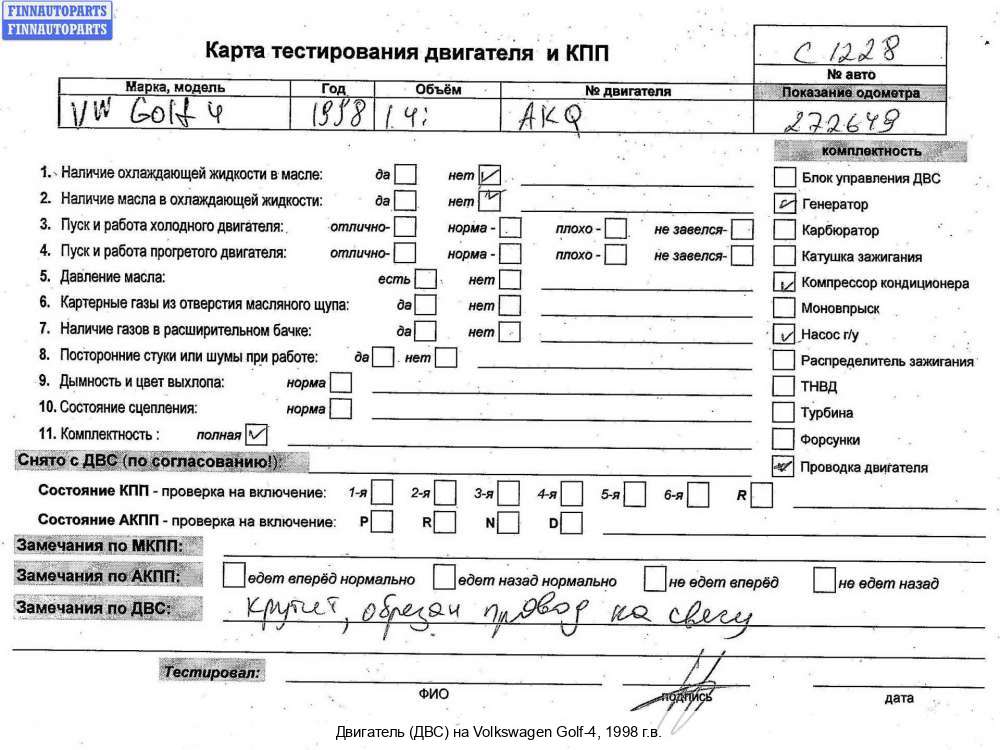 FINNAUTOPARTS
FINNAUTOPARTS
Карта тестирования двигателя и КПП
С 1228
№ авто
Марка, модель Год Объём № двигателя Показание одометра
VW Golf 4 1998 1.4i AKQ 272649
комплектность
1. Наличие охлаждающей жидкости в масле: да нет
2. Наличие масла в охлаждающей жидкости: да нет
3. Пуск и работа холодного двигателя: отлично- норма - плохо - не завелся-
4. Пуск и работа прогретого двигателя: отлично- норма - плохо - не завелся-
5. Давление масла: есть нет
6. Картерные газы из отверстия масляного щупа: да нет
7. Наличие газов в расширительном бачке: да нет
8. Посторонние стуки или шумы при работе: да нет
9. Дымность и цвет выхлопа: норма
10. Состояние сцепления: норма
11. Комплектность : полная
Блок управления ДВС
Генератор
Карбюратор
Катушка зажигания
Компрессор кондиционера
Моновпрыск
Насос г/у
Распределитель зажигания
ТНВД
Турбина
Форсунки
Проводка двигателя
Снято с ДВС (по согласованию!):
Состояние КПП - проверка на включение: 1-я 2-я 3-я 4-я 5-я 6-я R
Состояние АКПП - проверка на включение: P R N D
Замечания по МКПП:
Замечания по АКПП: едет вперёд нормально едет назад нормально не едет вперёд не едет назад
Замечания по ДВС: крутит, обрезан провод на свечу
Тестировал:
ФИО подпись дата
Двигатель (ДВС) на Volkswagen Golf-4, 1998 г.в.